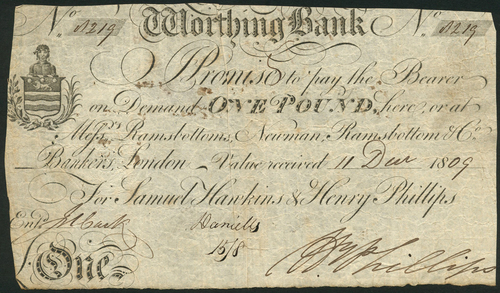 No. A219 Worthing Bank No. A219
I Promise to pay the Bearer
on Demand ONE POUND, here or at
Messrs. Ramsbottoms, Newman, Ramsbottom & Co.
Bankers, London Value received 11 Decr 1809
For Samuel Hawkins & Henry Phillips
Entd.
Daniells
15/8
One
Hy Phillips